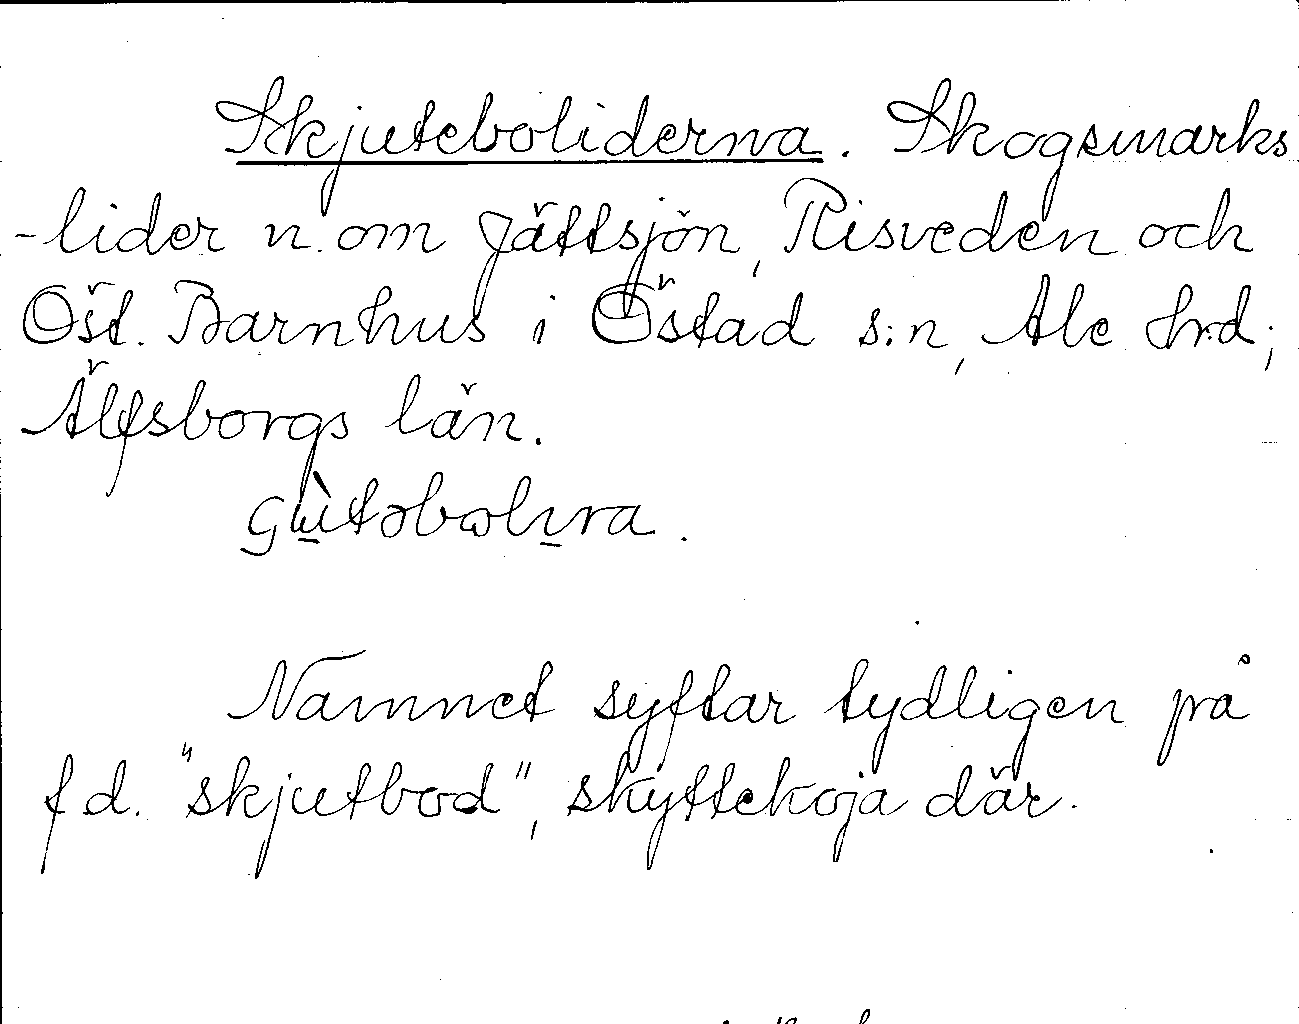 Skjuteboliderna. Skogsmarks
-lider n. om Jättsjön, Risveden och
Öst. Barnhus i Östad s:n, Ale hrd;
Älfsborgs län.
Namnet syftar tydligen på
f d. "skjutbod", skyttekoja där.